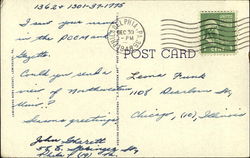 1362 + 1301-37-1995
I saw your name
in the POCMAN
Gazette.
Could you send a
view of Northwestern
Univ.?
Seasons greetings
John
Phila
PHILADELPHIA
DEC 30
PM
1948
POST CARD
Leona Funk
1108 Dearborn St.
Chicago, (10), Illinois